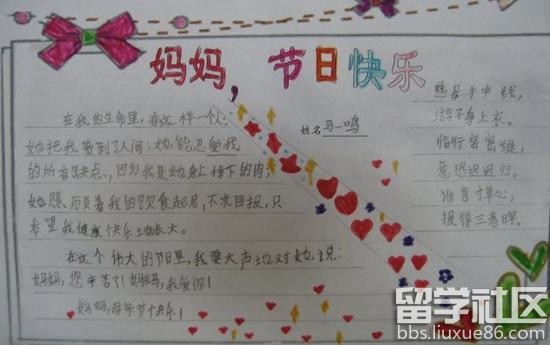 妈妈，节日快乐
姓名 马一鸣
在我的生命里，有这样一个人：
她把我带到了人间；她能忍受我
的所有缺点，因为我是她身上掉下的肉；
她照顾着我的饮食起居，不求回报，只
希望我健康快乐地长大。
在这个伟大的节日里，我要大声地对她说：
妈妈，您辛苦了！妈妈，我爱你！
妈妈，母亲节快乐！
慈母手中线，
游子身上衣。
临行密密缝，
意恐迟迟归。
谁言寸草心，
报得三春晖。
留学社区
bbs.liuxue86.com